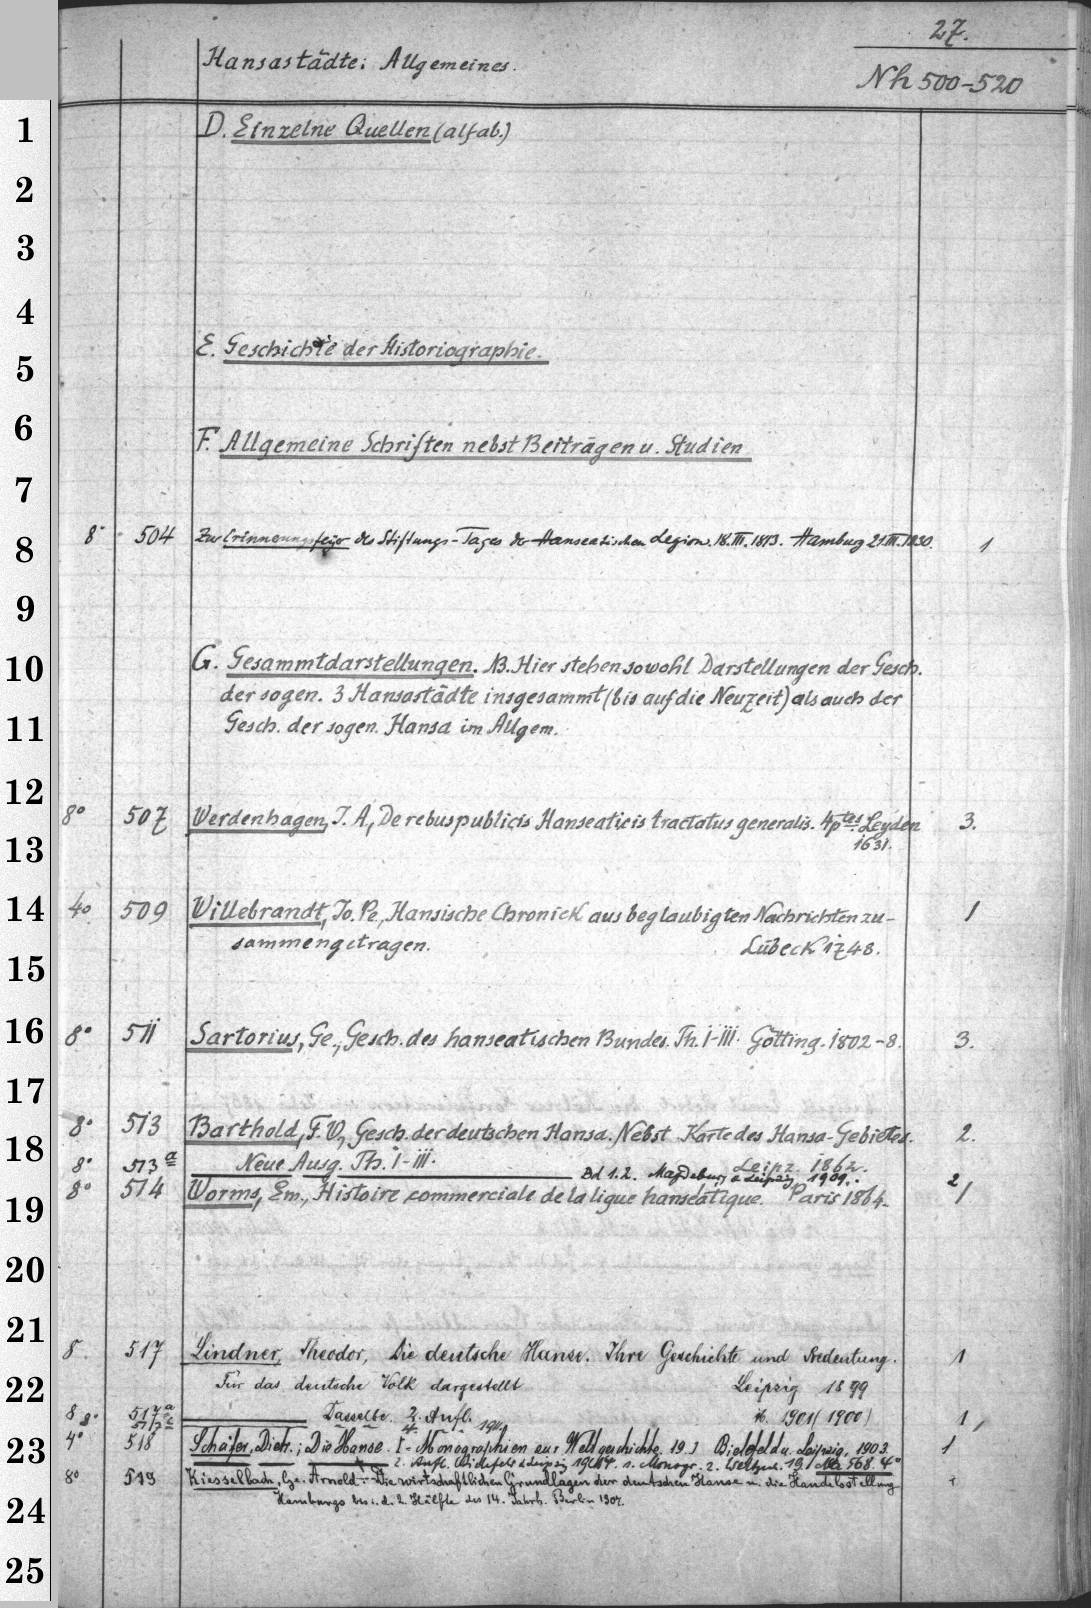 27.
Hansastädte: Allgemeines.
Nh 500-520
1
D. Einzelne Quellen (alfab.)
2
3
4
E. Geschichte der Historiographie.
5
6
F. Allgemeine Schriften nebst Beiträgen u. Studien
7
8
8° 504 Zur Erinnerungsfeier des Stiftungs-Tages der Hanseatischen Legion. 18.III.1813. Hamburg 21.III.1830. 1
9
10
G. Gesammtdarstellungen. NB. Hier stehen sowohl Darstellungen der Gesch.
der sogen. 3 Hansastädte insgesammt (bis auf die Neuzeit) als auch der
11
Gesch. der sogen. Hansa im Allgem.
12
8° 507 Werdenhagen, J. A., De rebus publicis Hanseaticis tractatus generalis. 4 ptes. Leyden 3.
1631.
13
14
4° 509 Willebrandt, Jo. Pe., Hansische Chronick aus beglaubigten Nachrichten zu- 1
sammengetragen. Lübeck 1748.
15
16
8° 511 Sartorius, Ge., Gesch. des hanseatischen Bundes. Th. I-III. Götting. 1802-8. 3.
17
8° 513 Barthold, F. W., Gesch. der deutschen Hansa. Nebst Karte des Hansa-Gebietes. 2.
18
Neue Ausg. Th. I-III. Leipz. 1862.
8° 513a Bd 1.2. Magdeburg u Leipzig 1909. 2
8° 514 Worms, Em., Histoire commerciale de la ligue hanséatique. Paris 1864. 1
19
20
21
8° 517 Lindner, Theodor, Die deutsche Hanse. Ihre Geschichte und Bedeutung. 1
22
Für das deutsche Volk dargestellt Leipzig 1899
8° 517a Dasselbe. 2. Aufl. ib. 1901 (1900) 1,
8° 4. 1911
23
4° 518 Schäfer, Dietr.; Die Hanse. I - Monographien zur Weltgeschichte. 19.) Bielefeld u. Leipzig, 1903. 1
2. Aufl. Bielefeld u Leipzig 568.4°
8° 519 Kiesselbach, Arnold: Die wirtschaftlichen Grundlagen der deutschen Hanse u. die Handelsstellung
24
Hamburgs bis i. d. 2. Hälfte des 14. Jahrh. Berlin 1907.
25